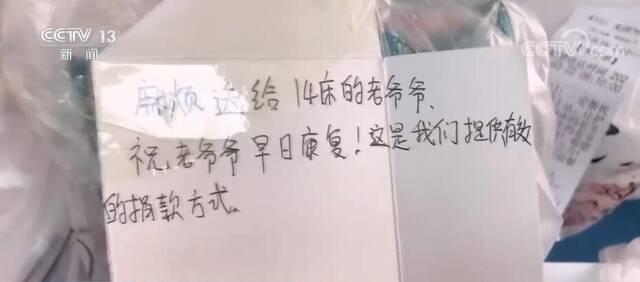 CCTV 13
新闻
CCTV.com
麻烦送给14床的老爷爷、
祝老爷爷早日康复！这是我们提供有效
的捐款方式。